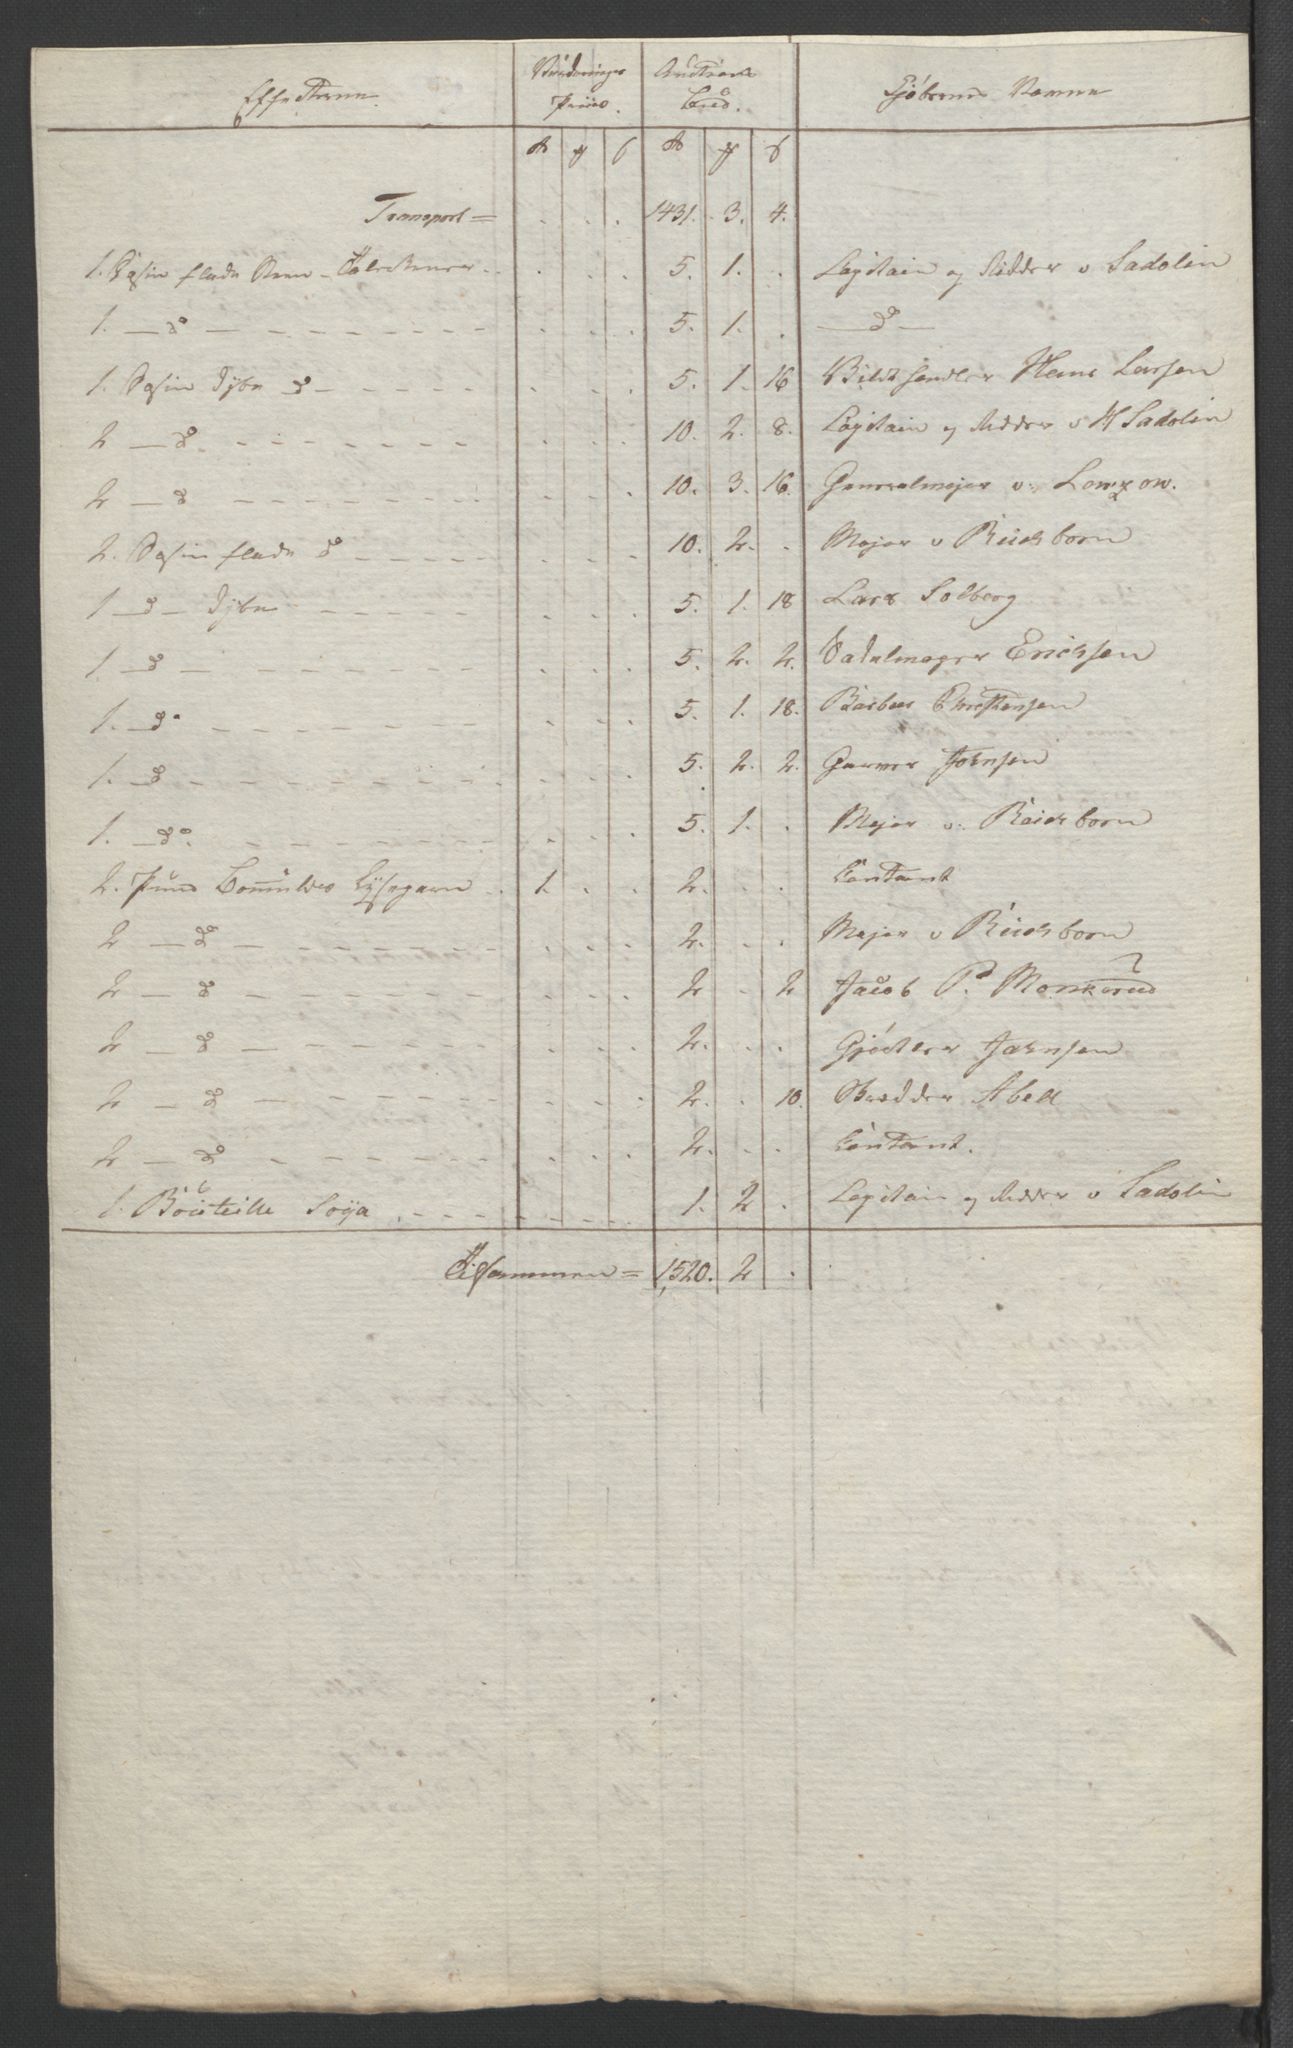 Effecterne. Vurderings Priis. Auctions Bud. Kjöberens Navne
Transport = 1431. 3. 4.
1. Dosin flade Steen-Tallerkener 5. 1. Capitain og Ridder v Sadolin
1. do 5. 1. do
1. Dosin dybe do 5. 1. 16 Hans Larsen
2 do 10. 2. 8. Capitain og Ridder v Sadolin
2 do 10. 3. 16. Generalmajor v. Lowzow.
2. Dosin flade do 10. 2. Major v Reichborn
1 do dybe 5. 1. 18 Lars Solberg
1. do 5. 2. 2. Sadelmager Erichsen
1. do 5. 1. 18. Christensen
1. do 5. 2. 2. Garver Johnsen
1. do 5. 1. Major v. Reichborn
2. Pund Bomulds Lysegarn 1. 2. Contant
2 do 2. Major v Reichborn
2 do 2 2 Jacob P. Monkerud
2 do 2. Johnsen
2 do 2. 10. Skrædder Abell
2 do 2. Contant.
1. Bouteille Soya 1. 2 Capitain og Ridder v Sadolin
Tilsammen = 1520. 2